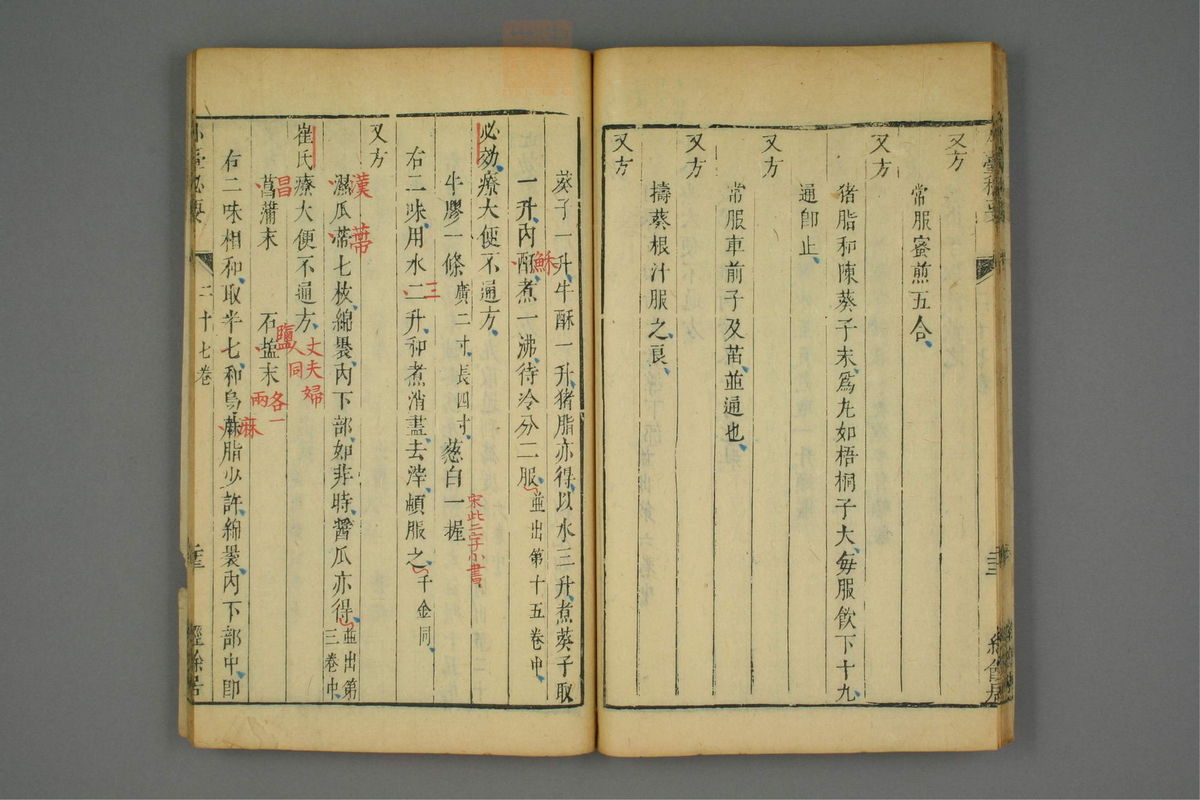 又方
常服蜜煎五合
又方
猪脂和陳葵子末為丸如梧桐子大每服飲下十九
通卽止
又方
常服車前子及苗並通也
又方
擣葵根汁服之良
又方
葵子一升牛酥一升猪脂亦得以水三升煮葵子取
一升内酥煮一沸待冷分二服並出第十五卷中
穌
必効療大便不通方
牛膠一條廣二寸長四寸葱白一握
宋此三字小書
右二味用水二升和煮消盡去滓頓服之千金同
三
又方
濕瓜蒂七枚綿褁内下部如非時醬瓜亦得並出第三卷中
漢 蔕
崔氏療大便不通方
丈夫婦人同
菖蒲末 石盐末
昌 鹽 各一兩
右二味相和取半七和烏蔴脂少許綿褁内下部中卽
麻
二十七卷
二十三
經餘居